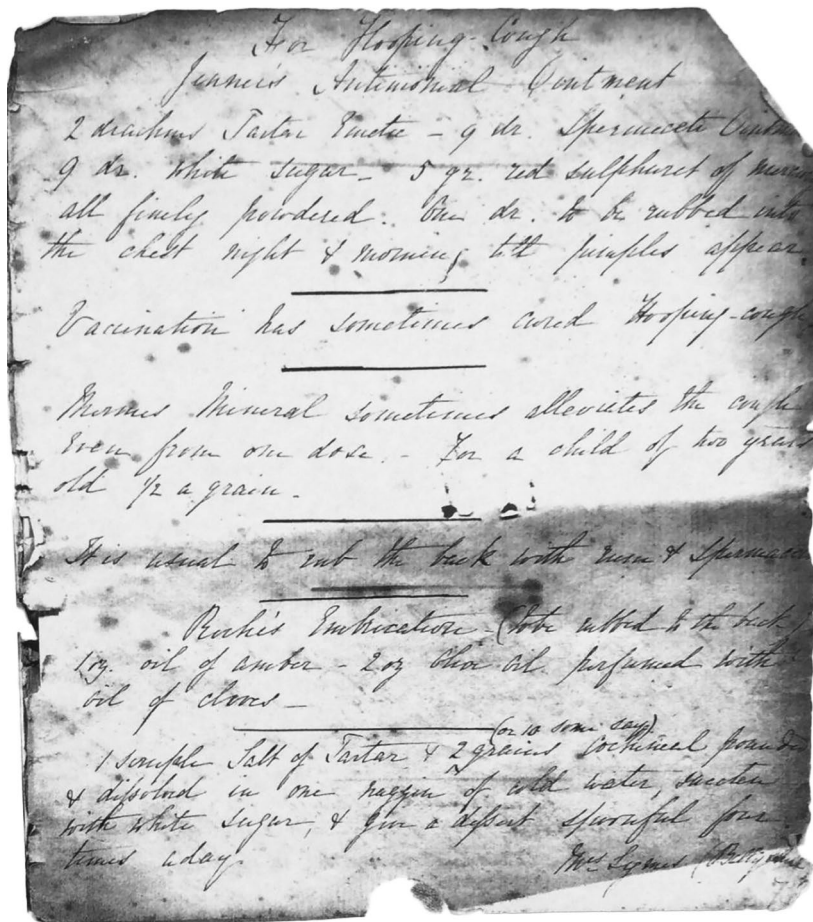 For Hooping-Cough
Jenner's Antimonial Ointment
2 drachms Tartar Emetic - 9 dr. Spermaceti
9 dr. white sugar - 5 gr. red sulphuret of
all finely powdered. One dr. to be rubbed into
the chest night & morning till pimples appear.
Vaccination has sometimes cured Hooping-cough.
Mineral sometimes alleviates the cough
even from one dose. - For a child of two years
old 1/2 a grain -
It is usual to rub the back with rum &
Roche's Embrication - (to be rubbed to the back)
1 oz. oil of amber - 2 oz Olive oil perfumed with
oil of cloves -
(or 10 some say)
1 scruple Salt of Tartar & 2 grains Cochineal
& dissolved in one naggin of cold water, sweeten
with white sugar, & give a dessert spoonful four
times a day.
Mrs